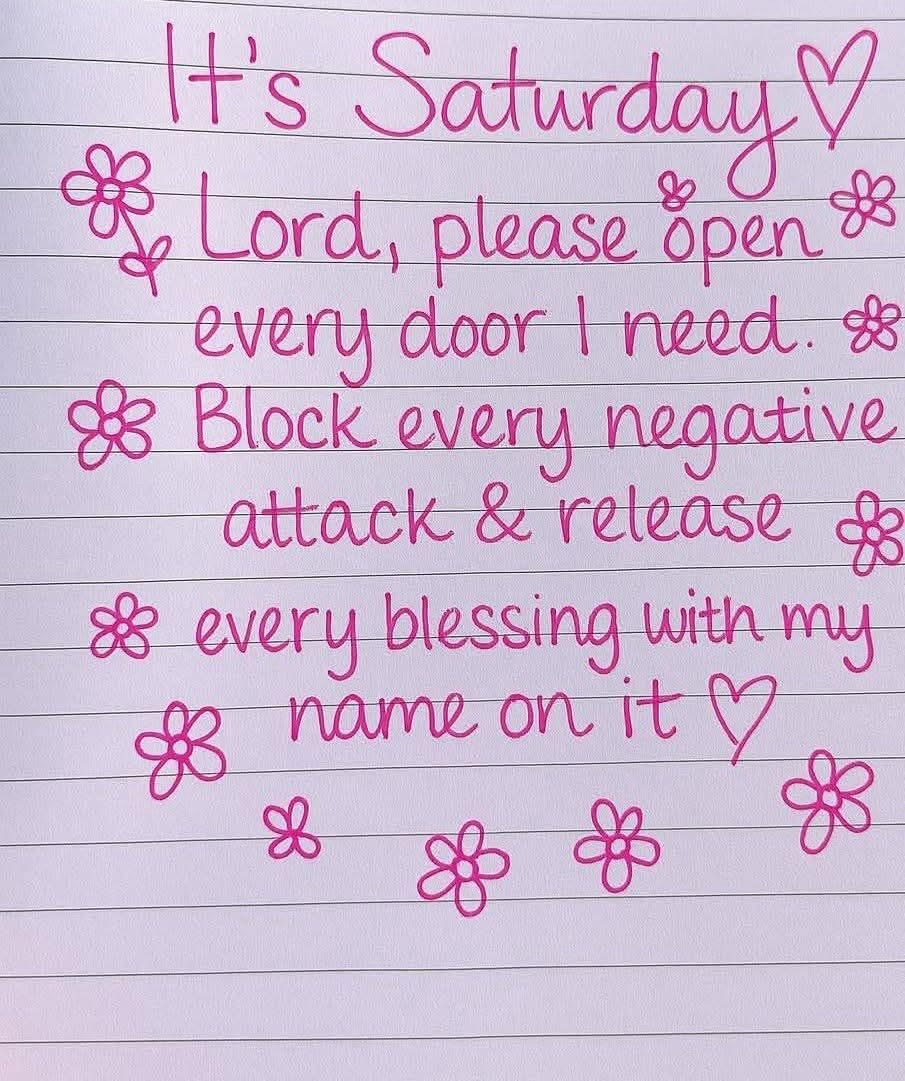 It's Saturday
Lord, please open
every door I need.
Block every negative
attack & release
every blessing with my
name on it